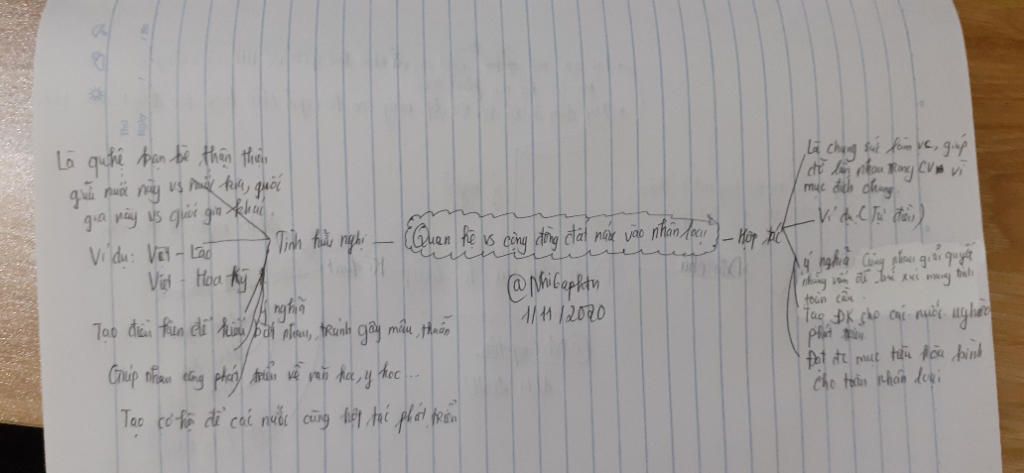 Là qhệ bạn bè thận thiện
giữa nước này vs nước kia, quốc
gia này vs quốc gia khác.
Ví dụ: Việt - Lào
Việt - Hoa Kỳ
Tình hữu nghị
ý nghĩa
Tạo điều kiện để hiểu nhau, tránh gây mâu thuẫn
Giúp nhau cùng phát triển về văn hóa, y học...
Tạo cơ hội để các nước cùng hợp tác phát triển
Quan hệ vs cộng đồng đất nước vào nhân loại
@Nhi6aphtn
1/11/2020
Hợp tác
Là chung sức làm vc, giúp
đỡ lẫn nhau trong CV vì
mục đích chung.
Ví dụ: (Tự điền)
ý nghĩa: Cùng nhau giải quyết
những vấn đề bức xúc mang tính
toàn cầu.
Tạo ĐK cho các nước nghèo
phát triển
Đạt đc mục tiêu hòa bình
cho toàn nhân loại
Thứ
Ngày